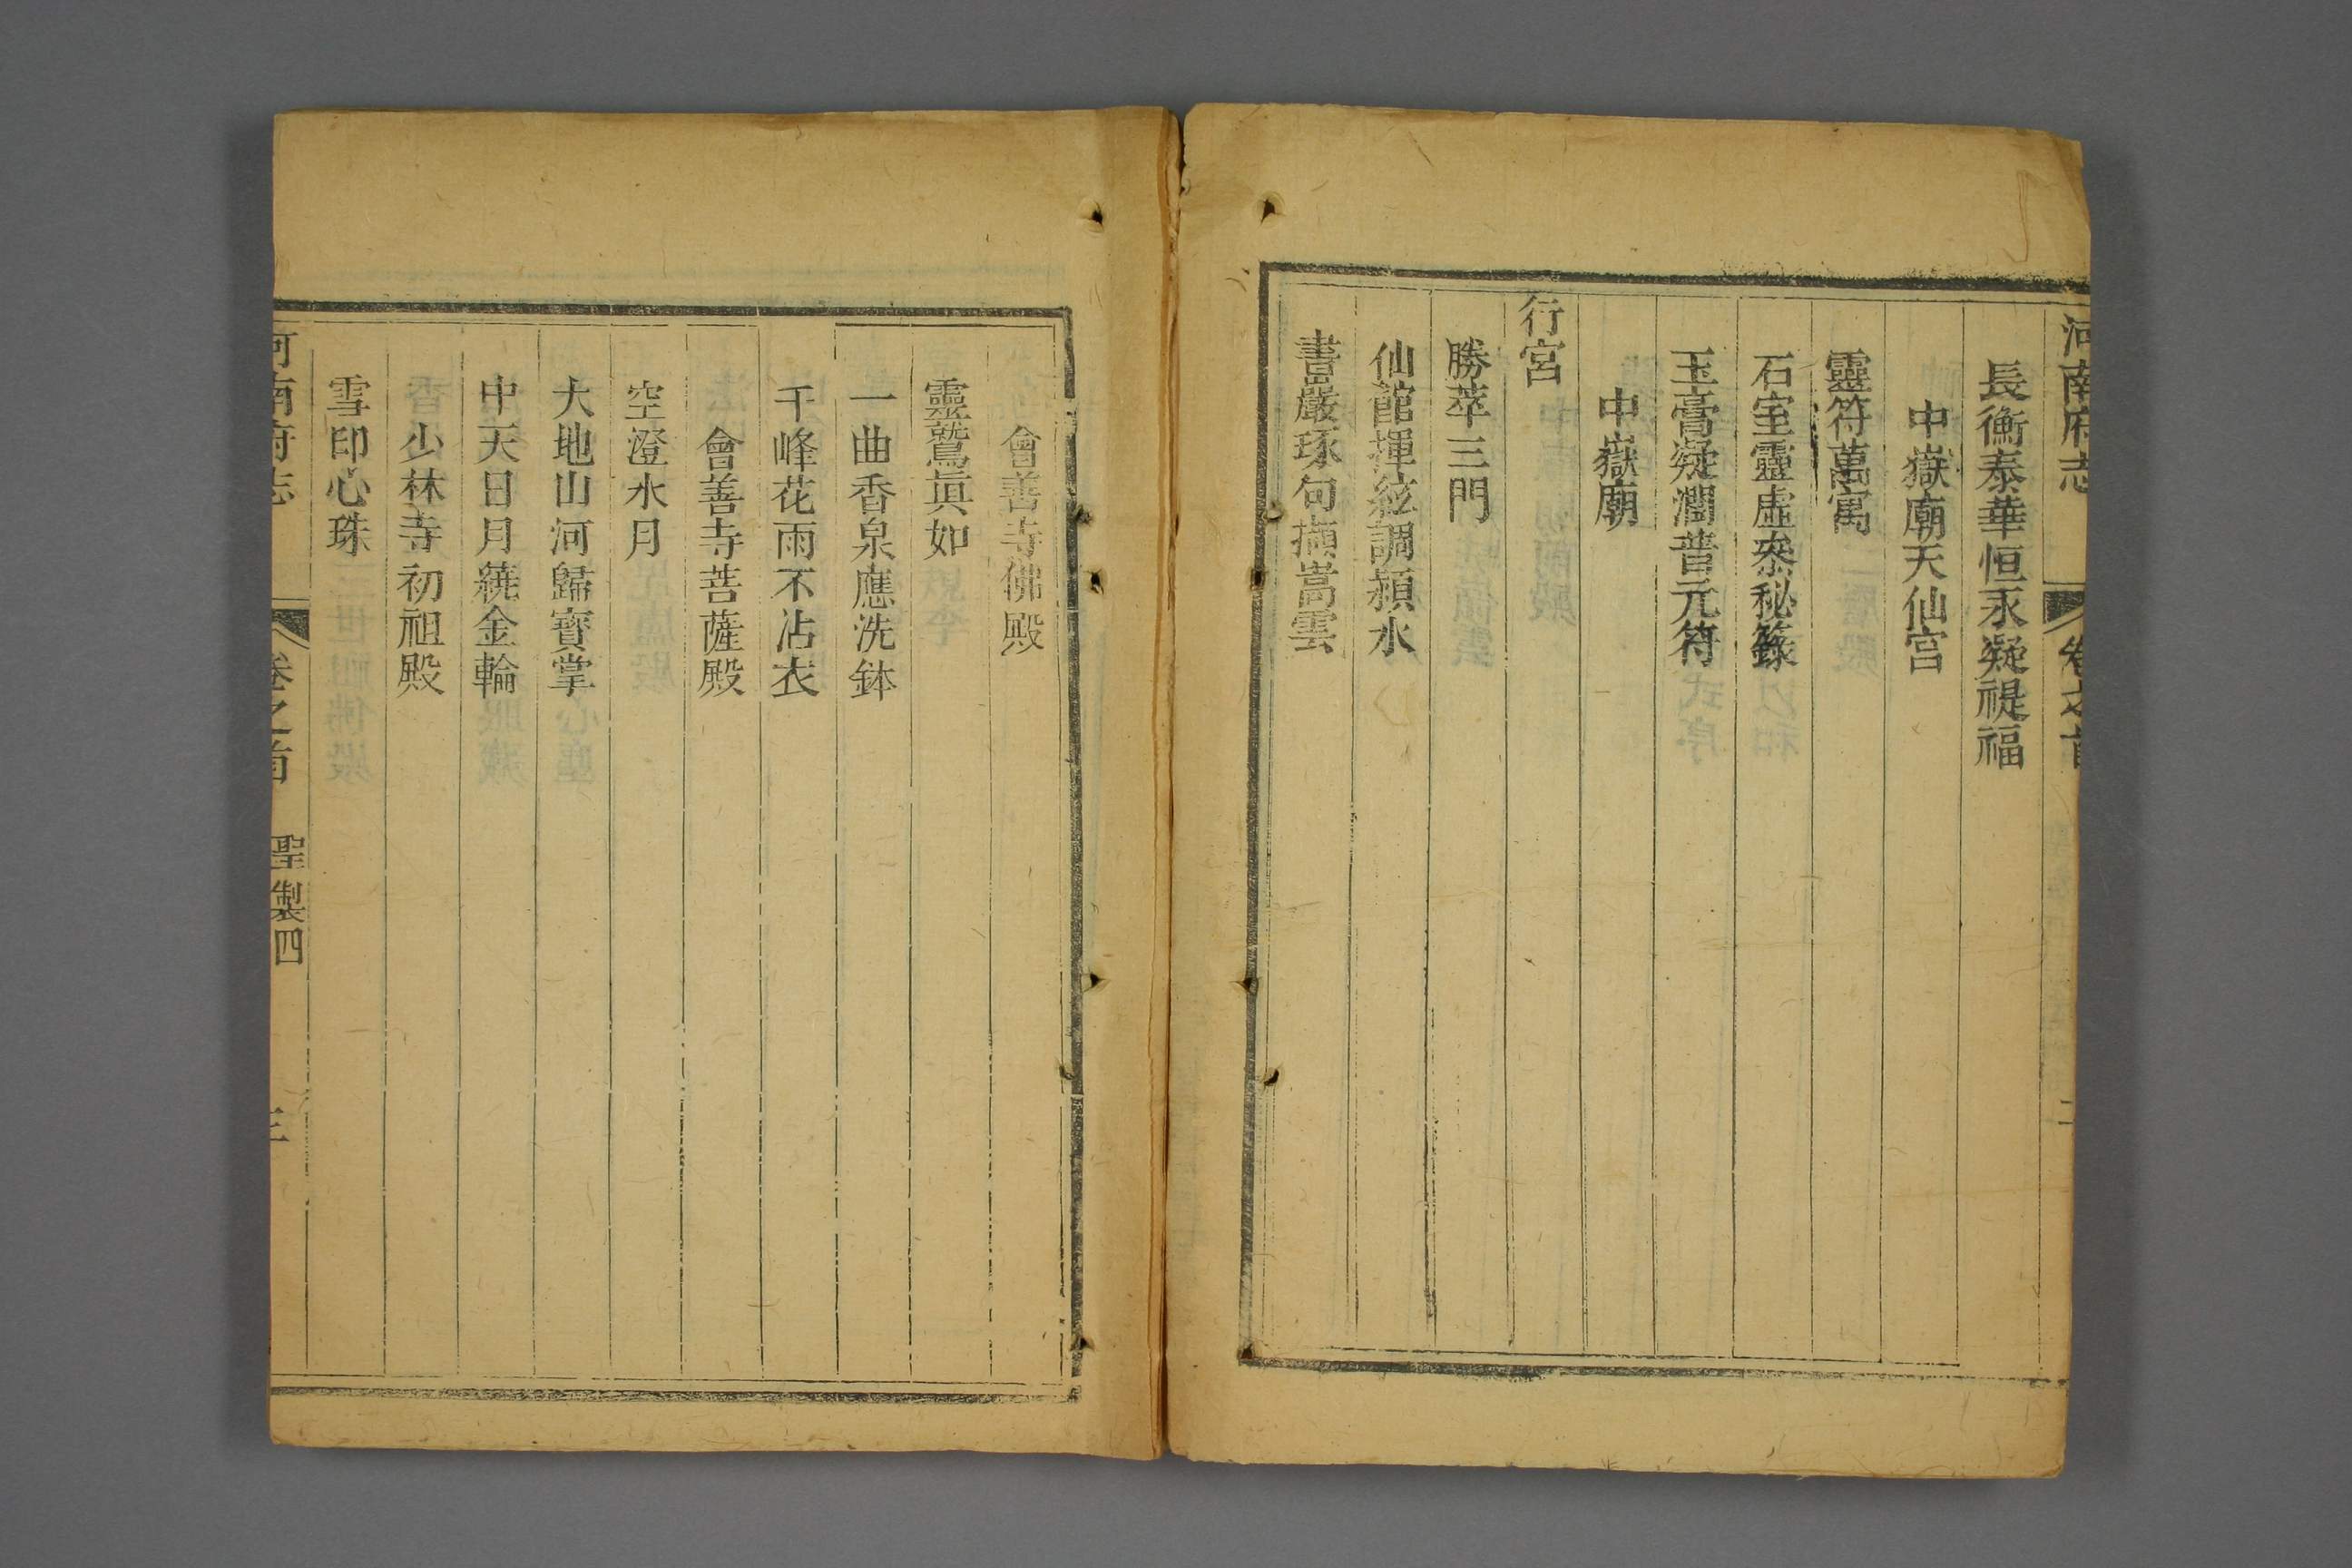 河南府志
卷之首
長衡泰華恒永凝禔福
中嶽廟天仙宮
靈符萬寓
石室靈虛叅秘籙
玉膏凝潤普元符
中嶽廟
行宮
勝萃三門
仙館揮絃調潁水
書巖琢句擷嵩雲
會善寺佛殿
靈鷲眞如
一曲香泉應洗鉢
千峰花雨不沾衣
會善寺菩薩殿
空澄水月
大地山河歸寶掌
中天日月繞金輪
少林寺初祖殿
雪印心珠
河南府志
卷之首
聖製四
三